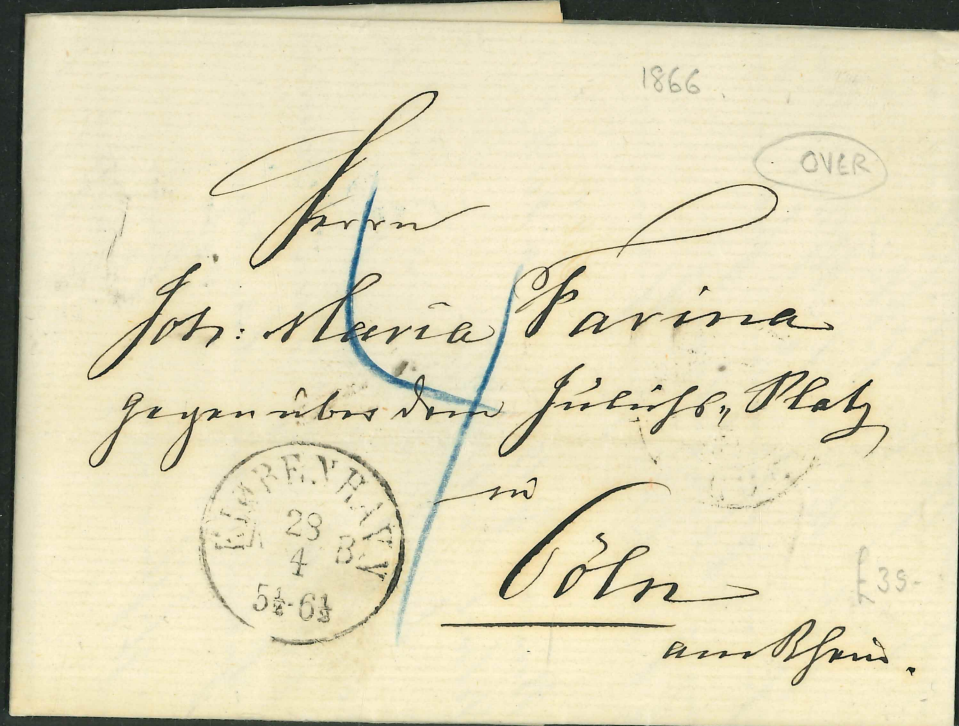 1866
OVER
Herrn
Joh: Maria Farina
gegenüber dem Jülichs„ Platz
in
Cöln
am Rhein.
4
KIØBENHAVN
28
4
B
5½-6½
£39-